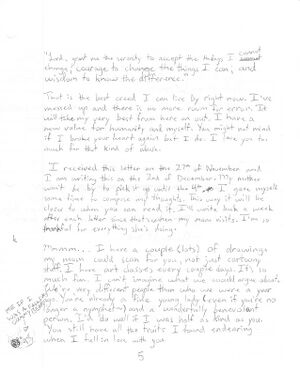 "Lord, grant me the serenity to accept the things I cannot
change, courage to change the things I can, and
wisdom to know the difference."
That is the best creed I can live by right now. I've
messed up and there is no more room for error. It
will take my very best from here on out. I have a
new value for humanity and myself. You might not mind
if I broke your heart again but I do. I love you too
much for that kind of abuse.
I received this letter on the 27th of November and
I am writing this on the 2nd of December. My mother
won't be by to pick it up until the 4th, so I gave myself
some time to compose my thoughts. This way it will be
closer to when you can read it. I'll write back a week
after each letter since that's when my mom visits. I'm so
thankful for everything she's doing.
Mmmm... I have a couple (lots) of drawings
my mom could scan for you, not just cartoony
stuff. I have art classes every couple days. It's so
much fun. I can't imagine what we would argue about.
We're very different people than who we were a year
ago. You're already a fine young lady (even if you're no
longer a nymphet) and a wonderfully benevolent
person. I'd do well if I was half as kind as you.
You still have all the traits I found endearing
when I fell in love with you.
me if I
was a
5